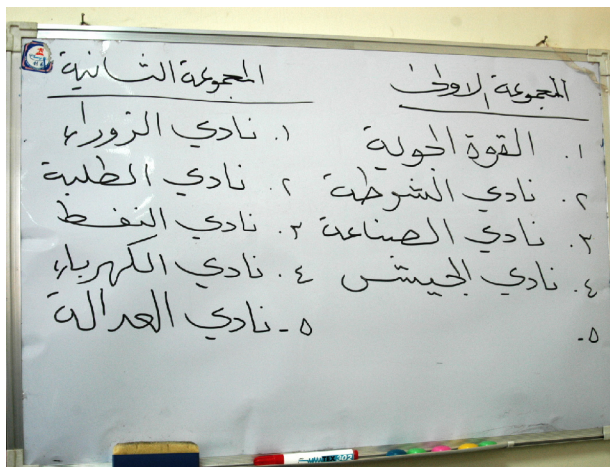 المجموعة الاولى
١. القوة الجوية
٢. نادي الشرطة
٣. نادي الصناعة
٤. نادي الجيش
٥-
المجموعة الثانية
١. نادي الزوراء
٢. نادي الطلبة
٣. نادي النفط
٤. نادي الكهرباء
٥- نادي العدالة